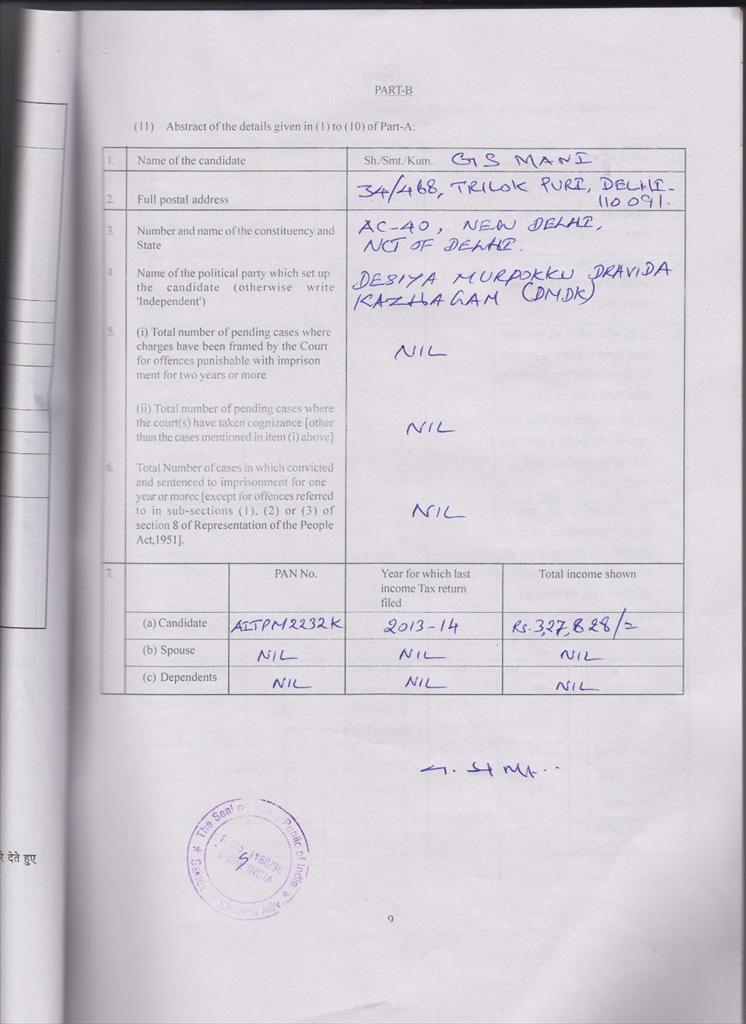 PART-B
(11) Abstract of the details given in (1) to (10) of Part-A:
1. Name of the candidate Sh./Smt./Kum. G S MANI
2. Full postal address 34/468, TRILOK PURI, DELHI-
110 091.
3. Number and name of the constituency and
State
AC-40, NEW DELHI,
NCT OF DELHI.
4 Name of the political party which set up
the candidate (otherwise write
'Independent')
DESIYA MURPOKKU DRAVIDA
KAZHAGAM (DMDK)
5. (i) Total number of pending cases where
charges have been framed by the Court
for offences punishable with imprison
ment for two years or more
NIL
(ii) Total number of pending cases where
the court(s) have taken cognizance [other
than the cases mentioned in item (i) above]
NIL
6. Total Number of cases in which convicted
and sentenced to imprisonment for one
year or moree [except for offences referred
to in sub-sections (1), (2) or (3) of
section 8 of Representation of the People
Act,1951].
NIL
7. PAN No. Year for which last
income Tax return
filed
Total income shown
(a) Candidate AITPM2232K 2013-14 Rs.3,27,828/=
(b) Spouse NIL NIL NIL
(c) Dependents NIL NIL NIL
The Seal Public of India
INDIA
9
देते हुए